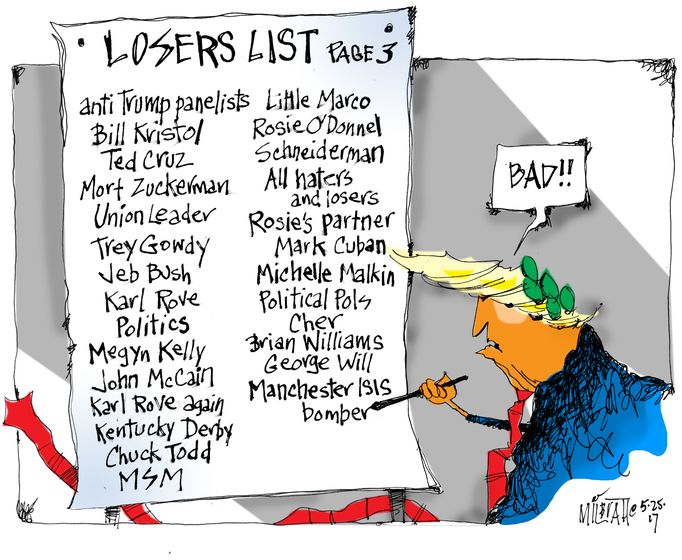 LOSERS LIST PAGE 3
anti Trump panelists
Bill Kristol
Ted Cruz
Mort Zuckerman
Union Leader
Trey Gowdy
Jeb Bush
Karl Rove
Politics
Megyn Kelly
John McCain
Karl Rove again
Kentucky Derby
Chuck Todd
MSM
Little Marco
Rosie O'Donnel
Schneiderman
All haters
and losers
Rosie's partner
Mark Cuban
Michelle Malkin
Political Pols
Cher
Brian Williams
George Will
Manchester ISIS
bomber
BAD!!
5·25·
17